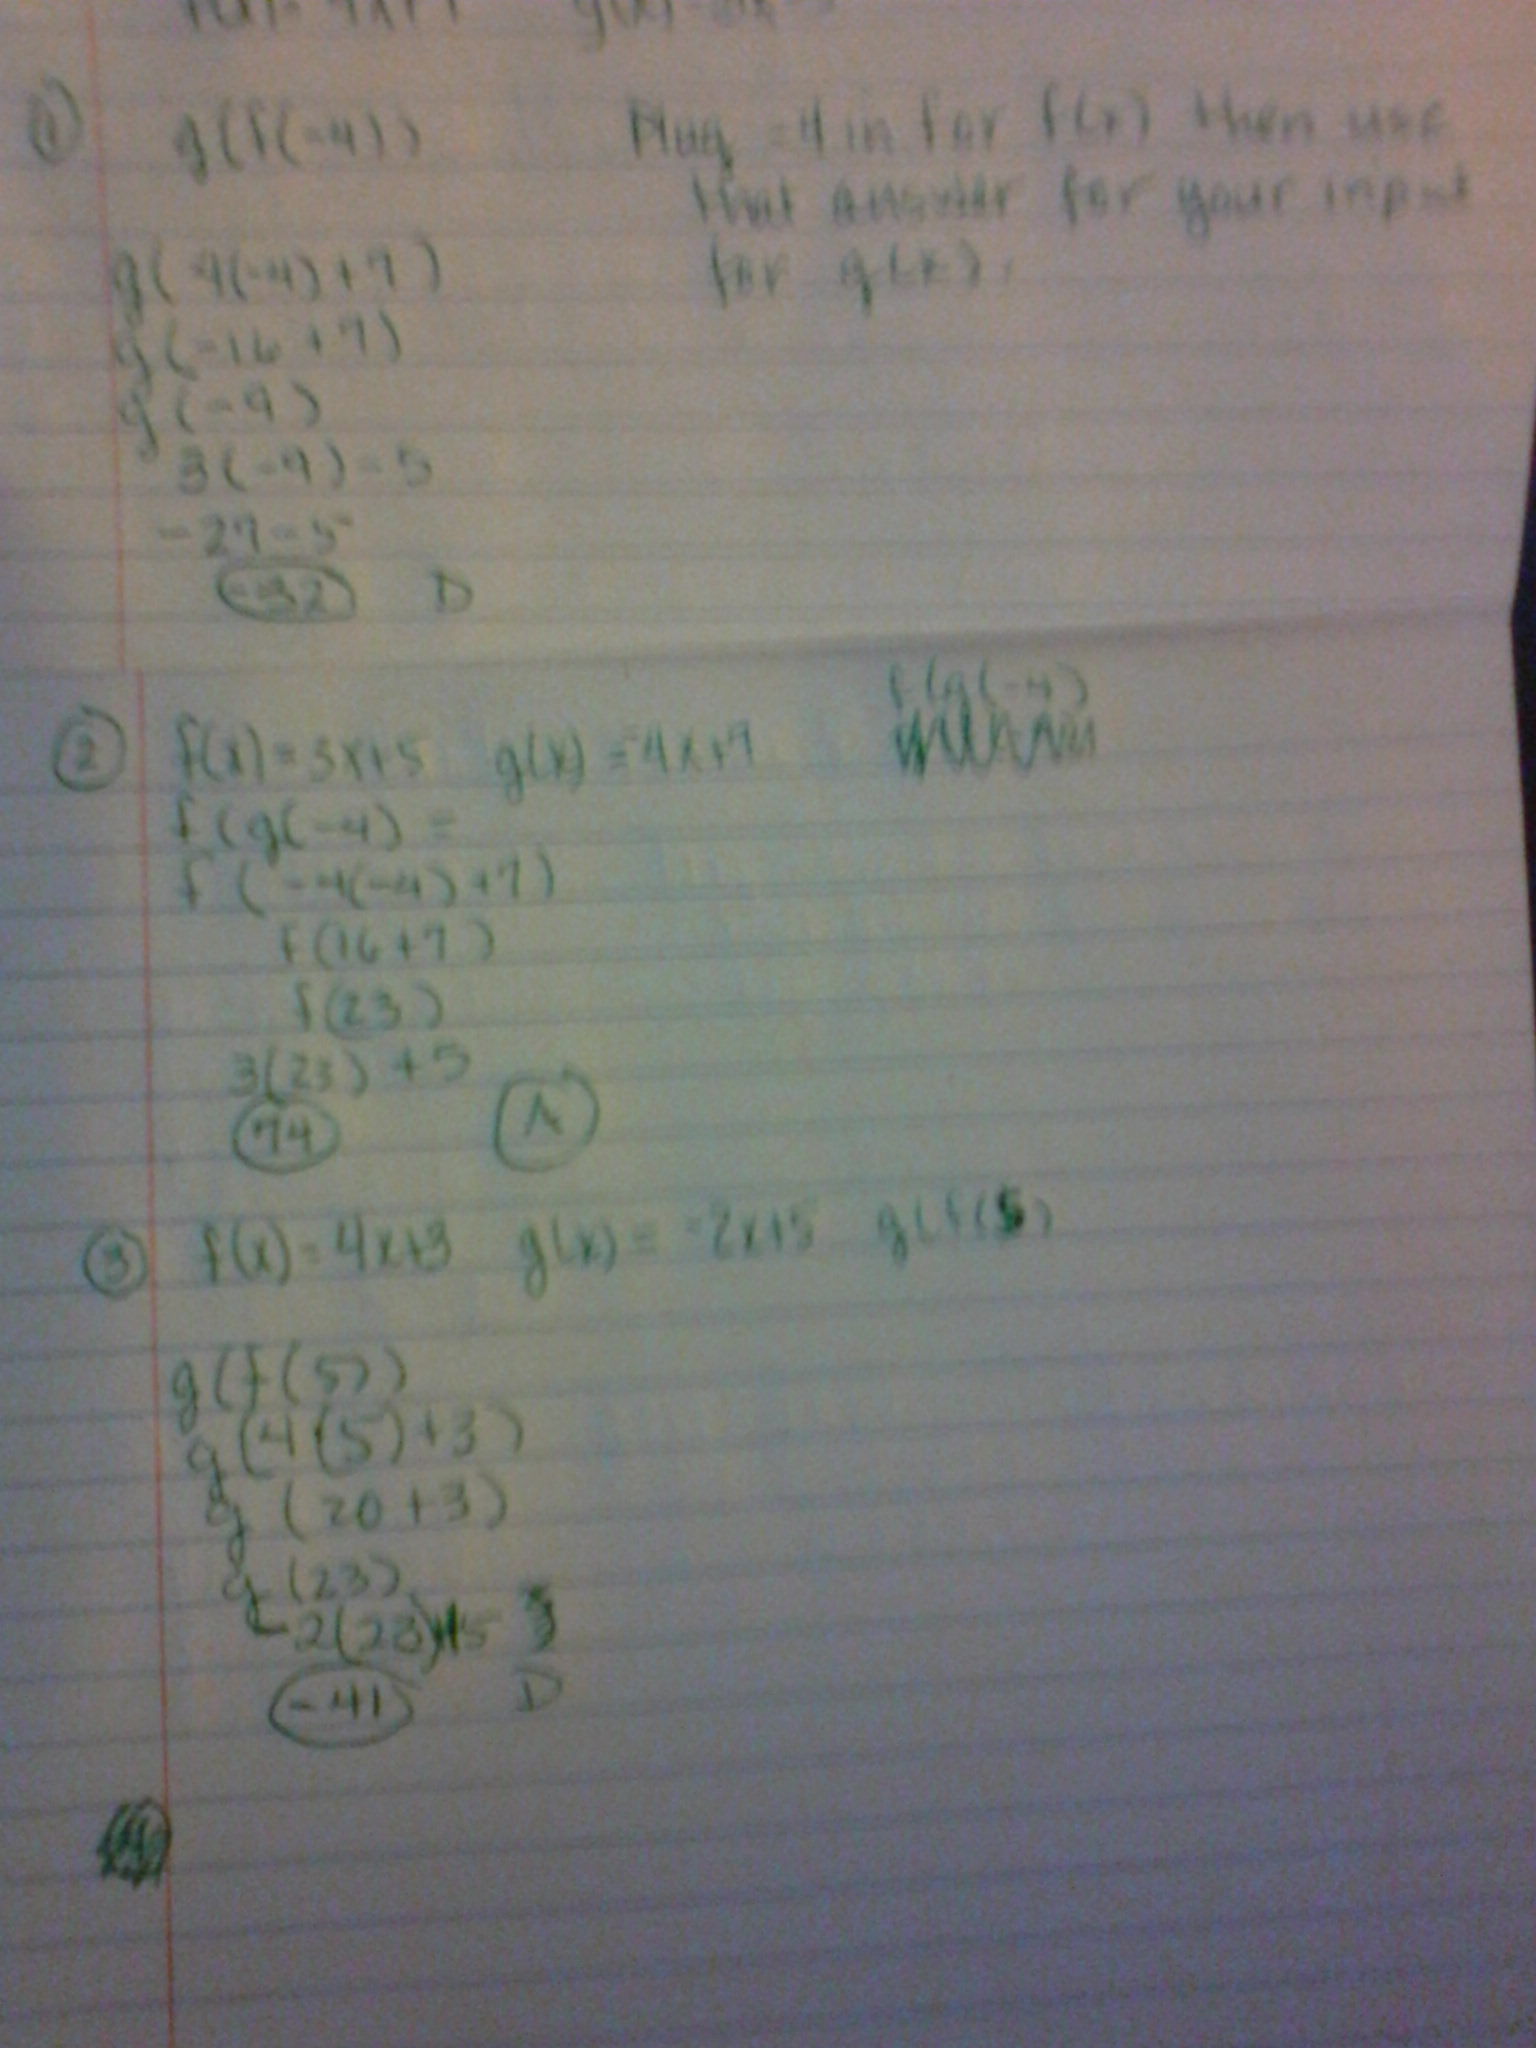 ① g(f(-4)) Plug -4 in for f(x) then use
that answer for your input
for g(x).
g(4(-4)+7)
g(-16+7)
g(-9)
3(-9)-5
-27-5
-32 D
f(g(-4)
② f(x)=3x+5 g(x)=-4x+7
f(g(-4)=
f(-4(-4)+7)
f(16+7)
f(23)
3(23)+5
74 A
③ f(x)=4x+3 g(x)=-2x+5 g(f(5)
g(f(5)
g(4(5)+3)
g(20+3)
g(23)
-2(23)+5
-41 D